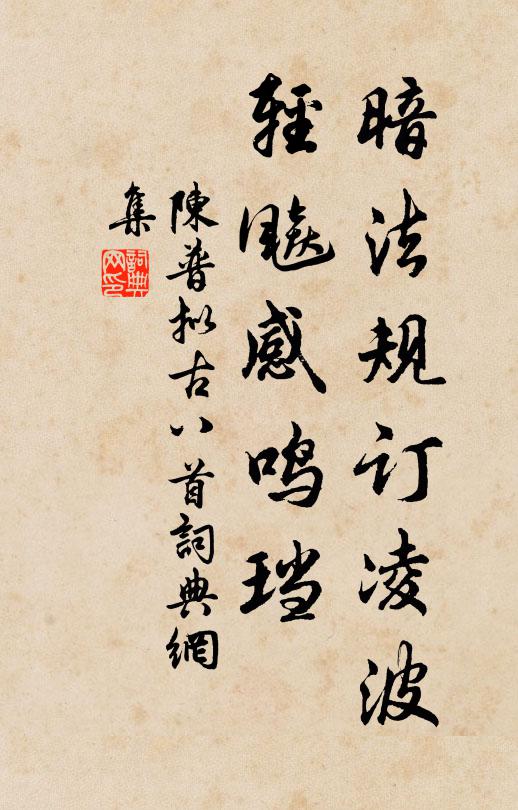 暗法规订凌波
輕飈感鸣珰
陳普拟古八首詞典網
集
詞典
网印